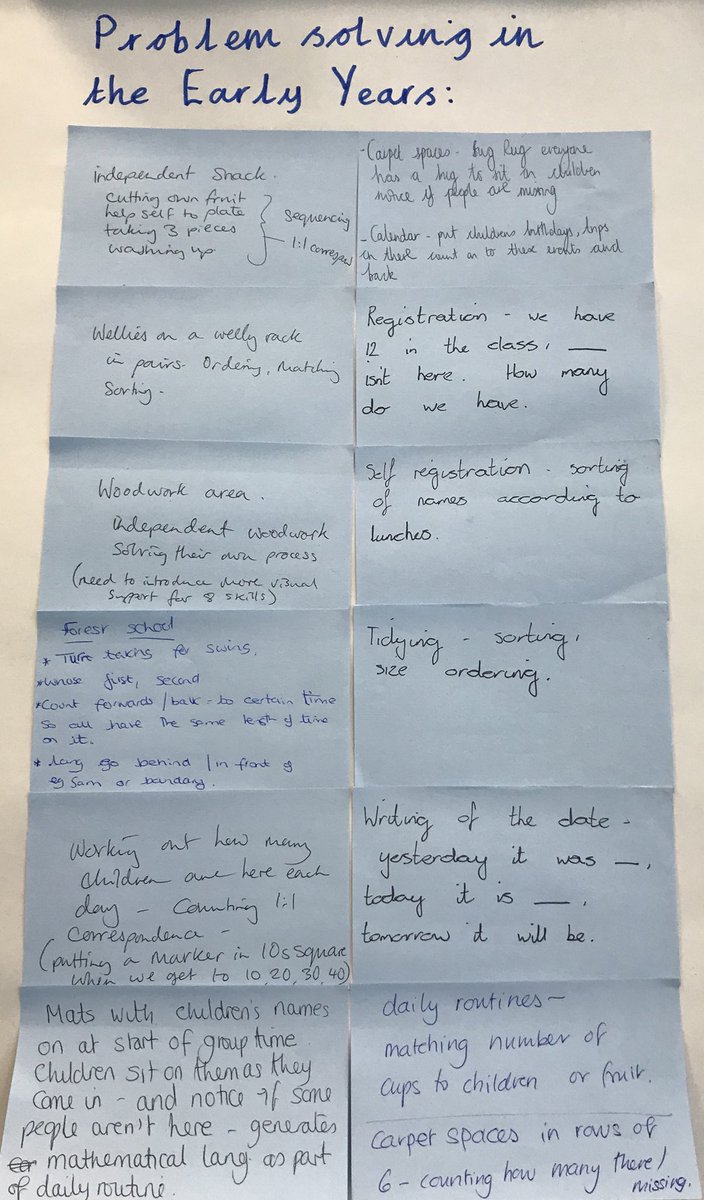 Problem solving in
the Early Years:
independent Snack.
cutting own fruit
help self to plate
taking 3 pieces
washing up
sequencing
1:1 correspon
- Carpet spaces - Bug Rug everyone
has a bug to sit in children
notice if people are missing
- Calendar - put childrens birthdays, trips
on there count on to these events and
back
Wellies on a welly rack
in pairs - Ordering, matching
Sorting -
Registration - we have
12 in the class, ___
isn't here. How many
do we have.
Woodwork area.
independent woodwork
Solving their own process
(need to introduce more visual
support for 8 skills)
Self registration - sorting
of names according to
lunches.
Forest school
* Turn taking for swing,
* whose first, second
* Count forwards / back - to certain time
so all have the same length of time
on it.
* Lang go behind / in front of
eg Sam or boundary.
Tidying - sorting,
size ordering.
Working out how many
children are here each
day - Counting 1:1
Correspondence -
(putting a marker in 10s square
when we get to 10, 20, 30, 40)
Writing of the date -
yesterday it was __,
today it is __,
tomorrow it will be.
Mats with children's names
on at start of group time.
Children sit on them as they
come in - and notice if some
people aren't here - generates
mathematical lang. as part
of daily routine.
daily routines -
matching number of
cups to children or fruit.
Carpet spaces in rows of
6 - counting how many there /
missing.